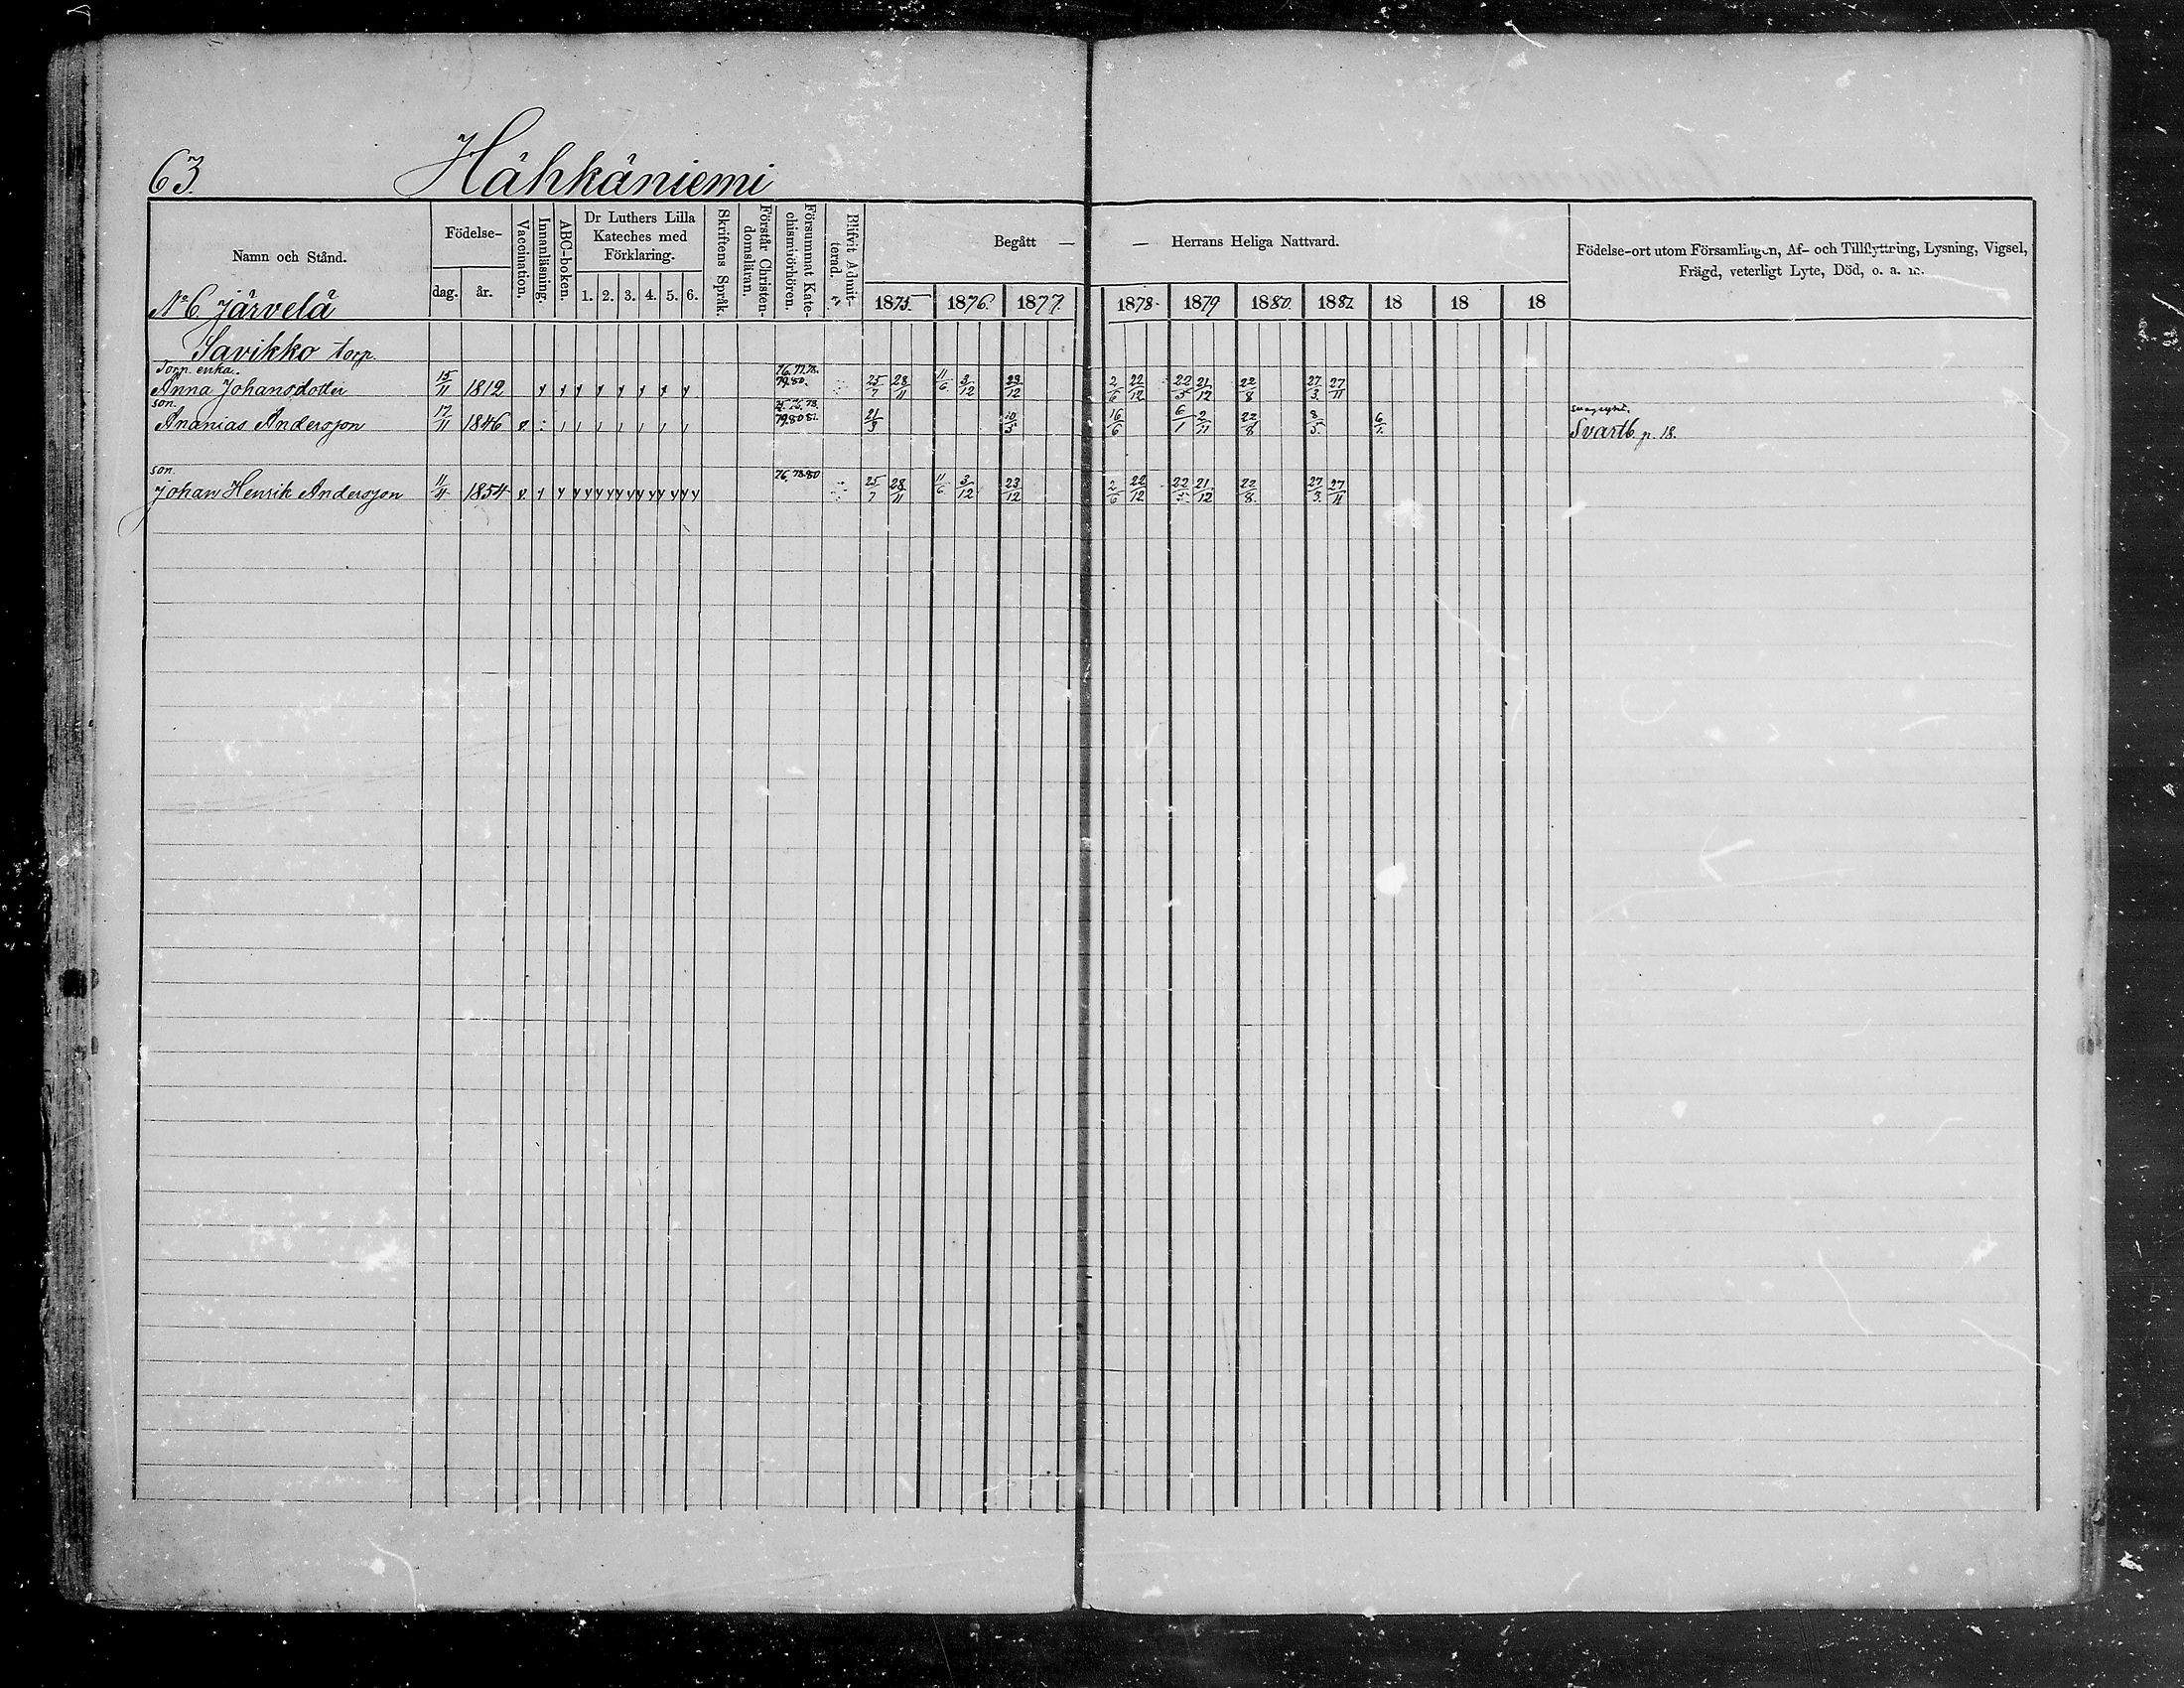 63.
Hähkäniemi
Namn och Stånd.
Födelse-
dag. år.
Vaccination.
Innanläsning.
ABC-boken.
Dr Luthers Lilla
Kateches med
Förklaring.
1. 2. 3. 4. 5. 6.
Skriftens Språk.
Förstår Christen-
domsläran.
Försummat Kate-
chismiförhören.
Blifvit Admit-
terad.
Begått — — Herrans Heliga Nattvard.
1875. 1876. 1877. 1878. 1879 1880. 1881. 18 18 18
Födelse-ort utom Församlingen, Af- och Tillflyttning, Lysning, Vigsel,
Frägd, veterligt Lyte, Död, o. a. m.
No 6 Järvelä
Savikko torp.
Torp. enka. 76. 77. 78.
Anna Johansdotter 15/11 1812 79. 80. 25/7 28/11 11/6 3/12 23/12 2/6 22/12 22/5 21/12 22/8 27/3 27/11
son. 75. 76. 78.
Ananias Andersson 17/11 1846 v. 79. 80 81. 21/3 10/5 16/6 6/1 2/11 22/8 8/5 6/1. Svartb. p. 18.
son. 76. 78. 80
Johan Henrik Andersson 11/4 1854 v 25/7 28/11 11/6 3/12 23/12 2/6 22/12 22/5 21/12 22/8. 27/3. 27/11